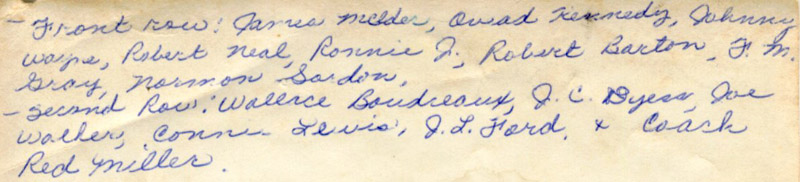 - Front row: James Melder, Ovad Kennedy, Johnny
Wayne, Robert Neal, Ronnie J., Robert Barton, F. M.
Gray, Normon Gordon.
- Second Row: Wallace Boudreaux, J. C. Dyess, Joe
Walker, Connie Lewis, J. L. Ford, & Coach
Red Miller.